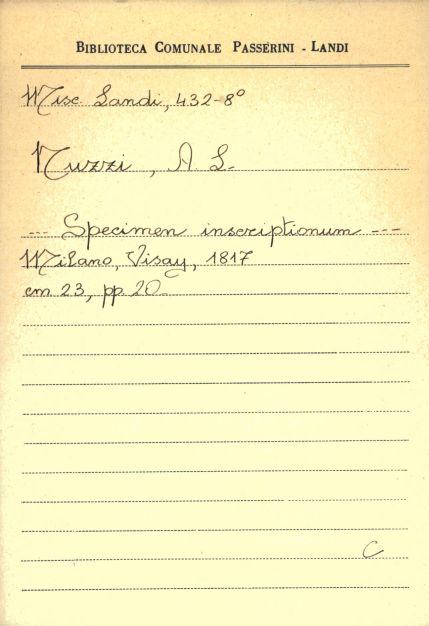 BIBLIOTECA COMUNALE PASSERINI - LANDI
Misc. Landi, 432-8°
Nuzzi, A L.
--- Specimen inscriptionum ---
Milano, Visay, 1817
cm 23, pp. 20.
C